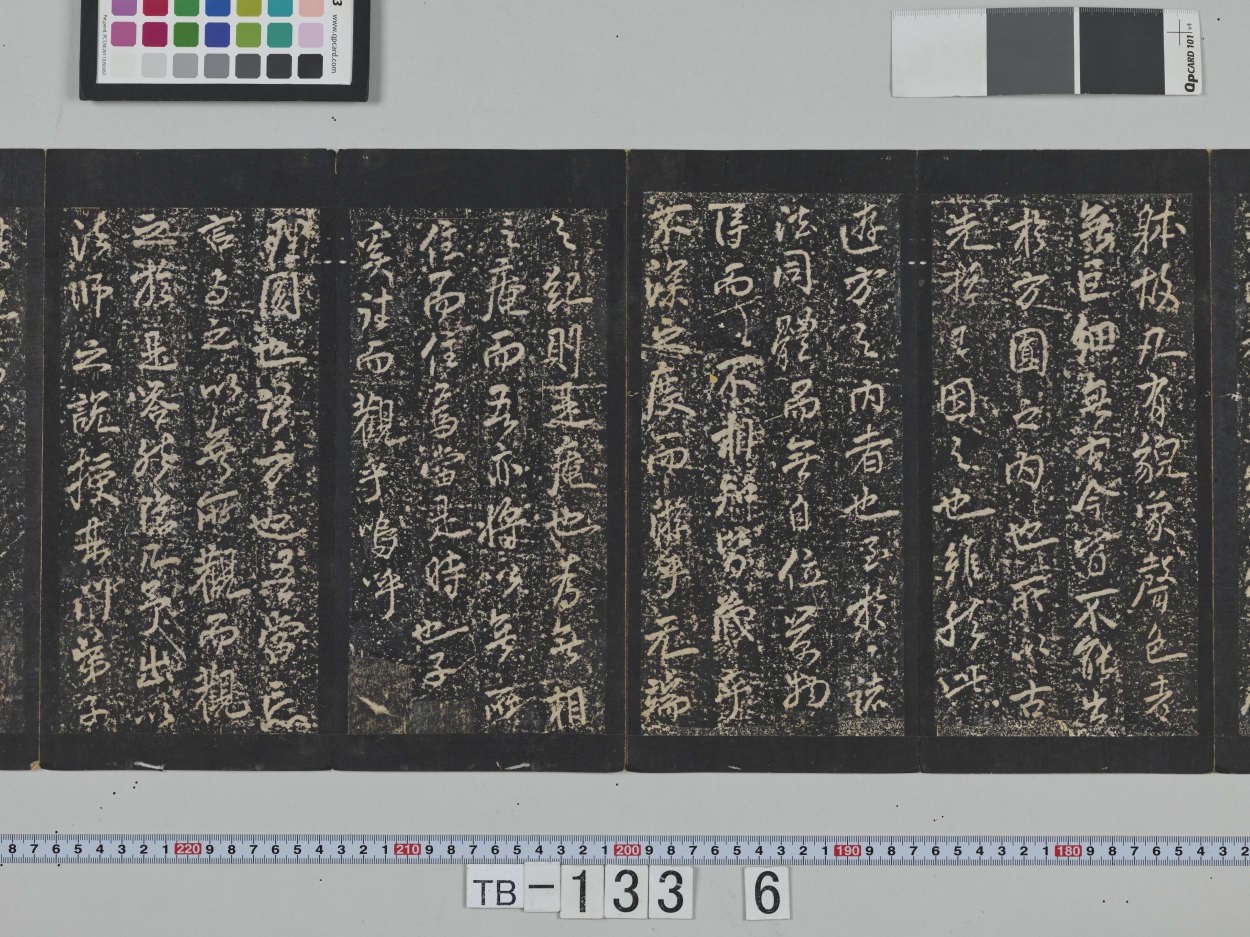 躰故凡有貌象聲色者
無巨細無古今皆不能出
於方圓之内也所以古
先哲王因之也雖然此
遊方之内者也至於諸
法同體而無自位萬物
得而不相辨崇嚴乎
不深之度而遊乎無端
之紀則是庵也為無相
之庵而吾亦將以無所
住而住焉當是時也子
奚往而觀乎嗚呼
理圓也語方也吾當忘
言與之以無所觀而觀
之於是答然隱几矣出以
法師之說授其門弟子
www.qpcard.com
QPCARD 101 v4
8 7 6 5 4 3 2 1 220 9 8 7 6 5 4 3 2 1 210 9 8 7 6 5 4 3 2 1 200 9 8 7 6 5 4 3 2 1 190 9 8 7 6 5 4 3 2 1 180 9 8 7 6 5 4 3 2
TB-133 6